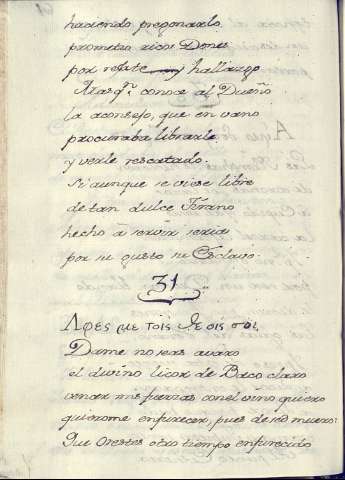 haciendo pregonarlo
prometio ricos Dones
por refate y hallazgo
Mas qn. conoce al Dueño
la aconsejo, que en vano
procuraba librarle
y verle rescatado.
Si aunque se viese libre
de tan dulce Tirano
hecho à servir seria
por su gusto su Esclavo.
31
Αφες με τοις θεοις σοι,
Dame no seas avaro
el divino licor de Baco claro
vencer mis fuerzas con el vino quiero
quierome enfurecer, pues de sed muero:
Que Orestes otro tiempo enfurecido